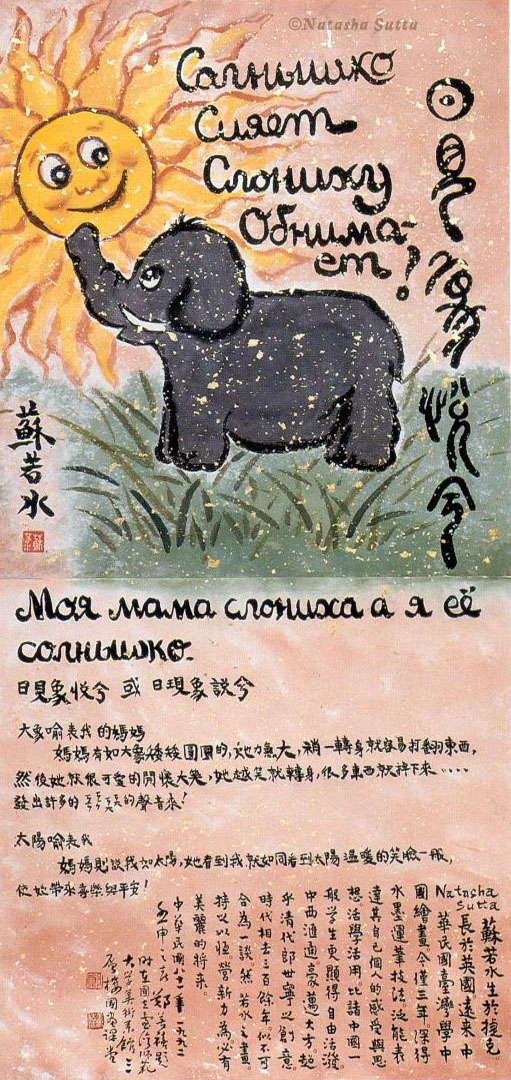 ©Natasha Sutta
Солнышко
Сияет
Слониху
Обнима-
ет!
日見象悅兮
蘇若水
Моя мама слониха а я её
солнышко.
日現象悅兮 或 日現象說兮
大象喻表我的媽媽
媽媽有如大象矮矮圓圓的,她力氣大,稍一轉身就容易打翻東西,
然後她就很可愛的開懷大笑,她越笑就轉身,很多東西就摔下來....
發出許多的 的聲音來!
太陽喻表我
媽媽則說我如太陽,她看到我,就如同看到太陽溫暖的笑臉一般,
使她帶來喜樂與平安!
Natasha
Sutta
蘇若水生於捷克
長於英國遠來中
華民國臺灣學中
國繪畫今僅三年。深得
水墨運筆技法泛能表
達其自己個人的感受與思
想活學活用比諸中國一
般學生更顯得自由活潑。
中西滙通。豪邁大方超
乎清代郎世寧之創意
時代相去三百餘年。似不可
合為一談然若水之畫。
持之以恒。營新力為必有
美麗的將來。
中華民國八十一年一九九二
壬申之 鄭善禧題
時在國立臺灣師範
大學美術系館二三
樓國畫課堂